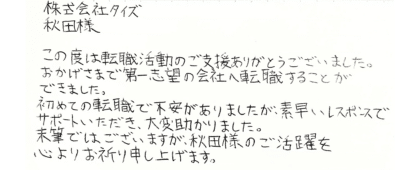 株式会社タイズ
秋田様
この度は転職活動のご支援ありがとうございました。
おかげさまで第一志望の会社へ転職することが
できました。
初めての転職で不安がありましたが、素早いレスポンスで
サポートいただき、大変助かりました。
末筆ではございますが、秋田様のご活躍を
心よりお祈り申し上げます。